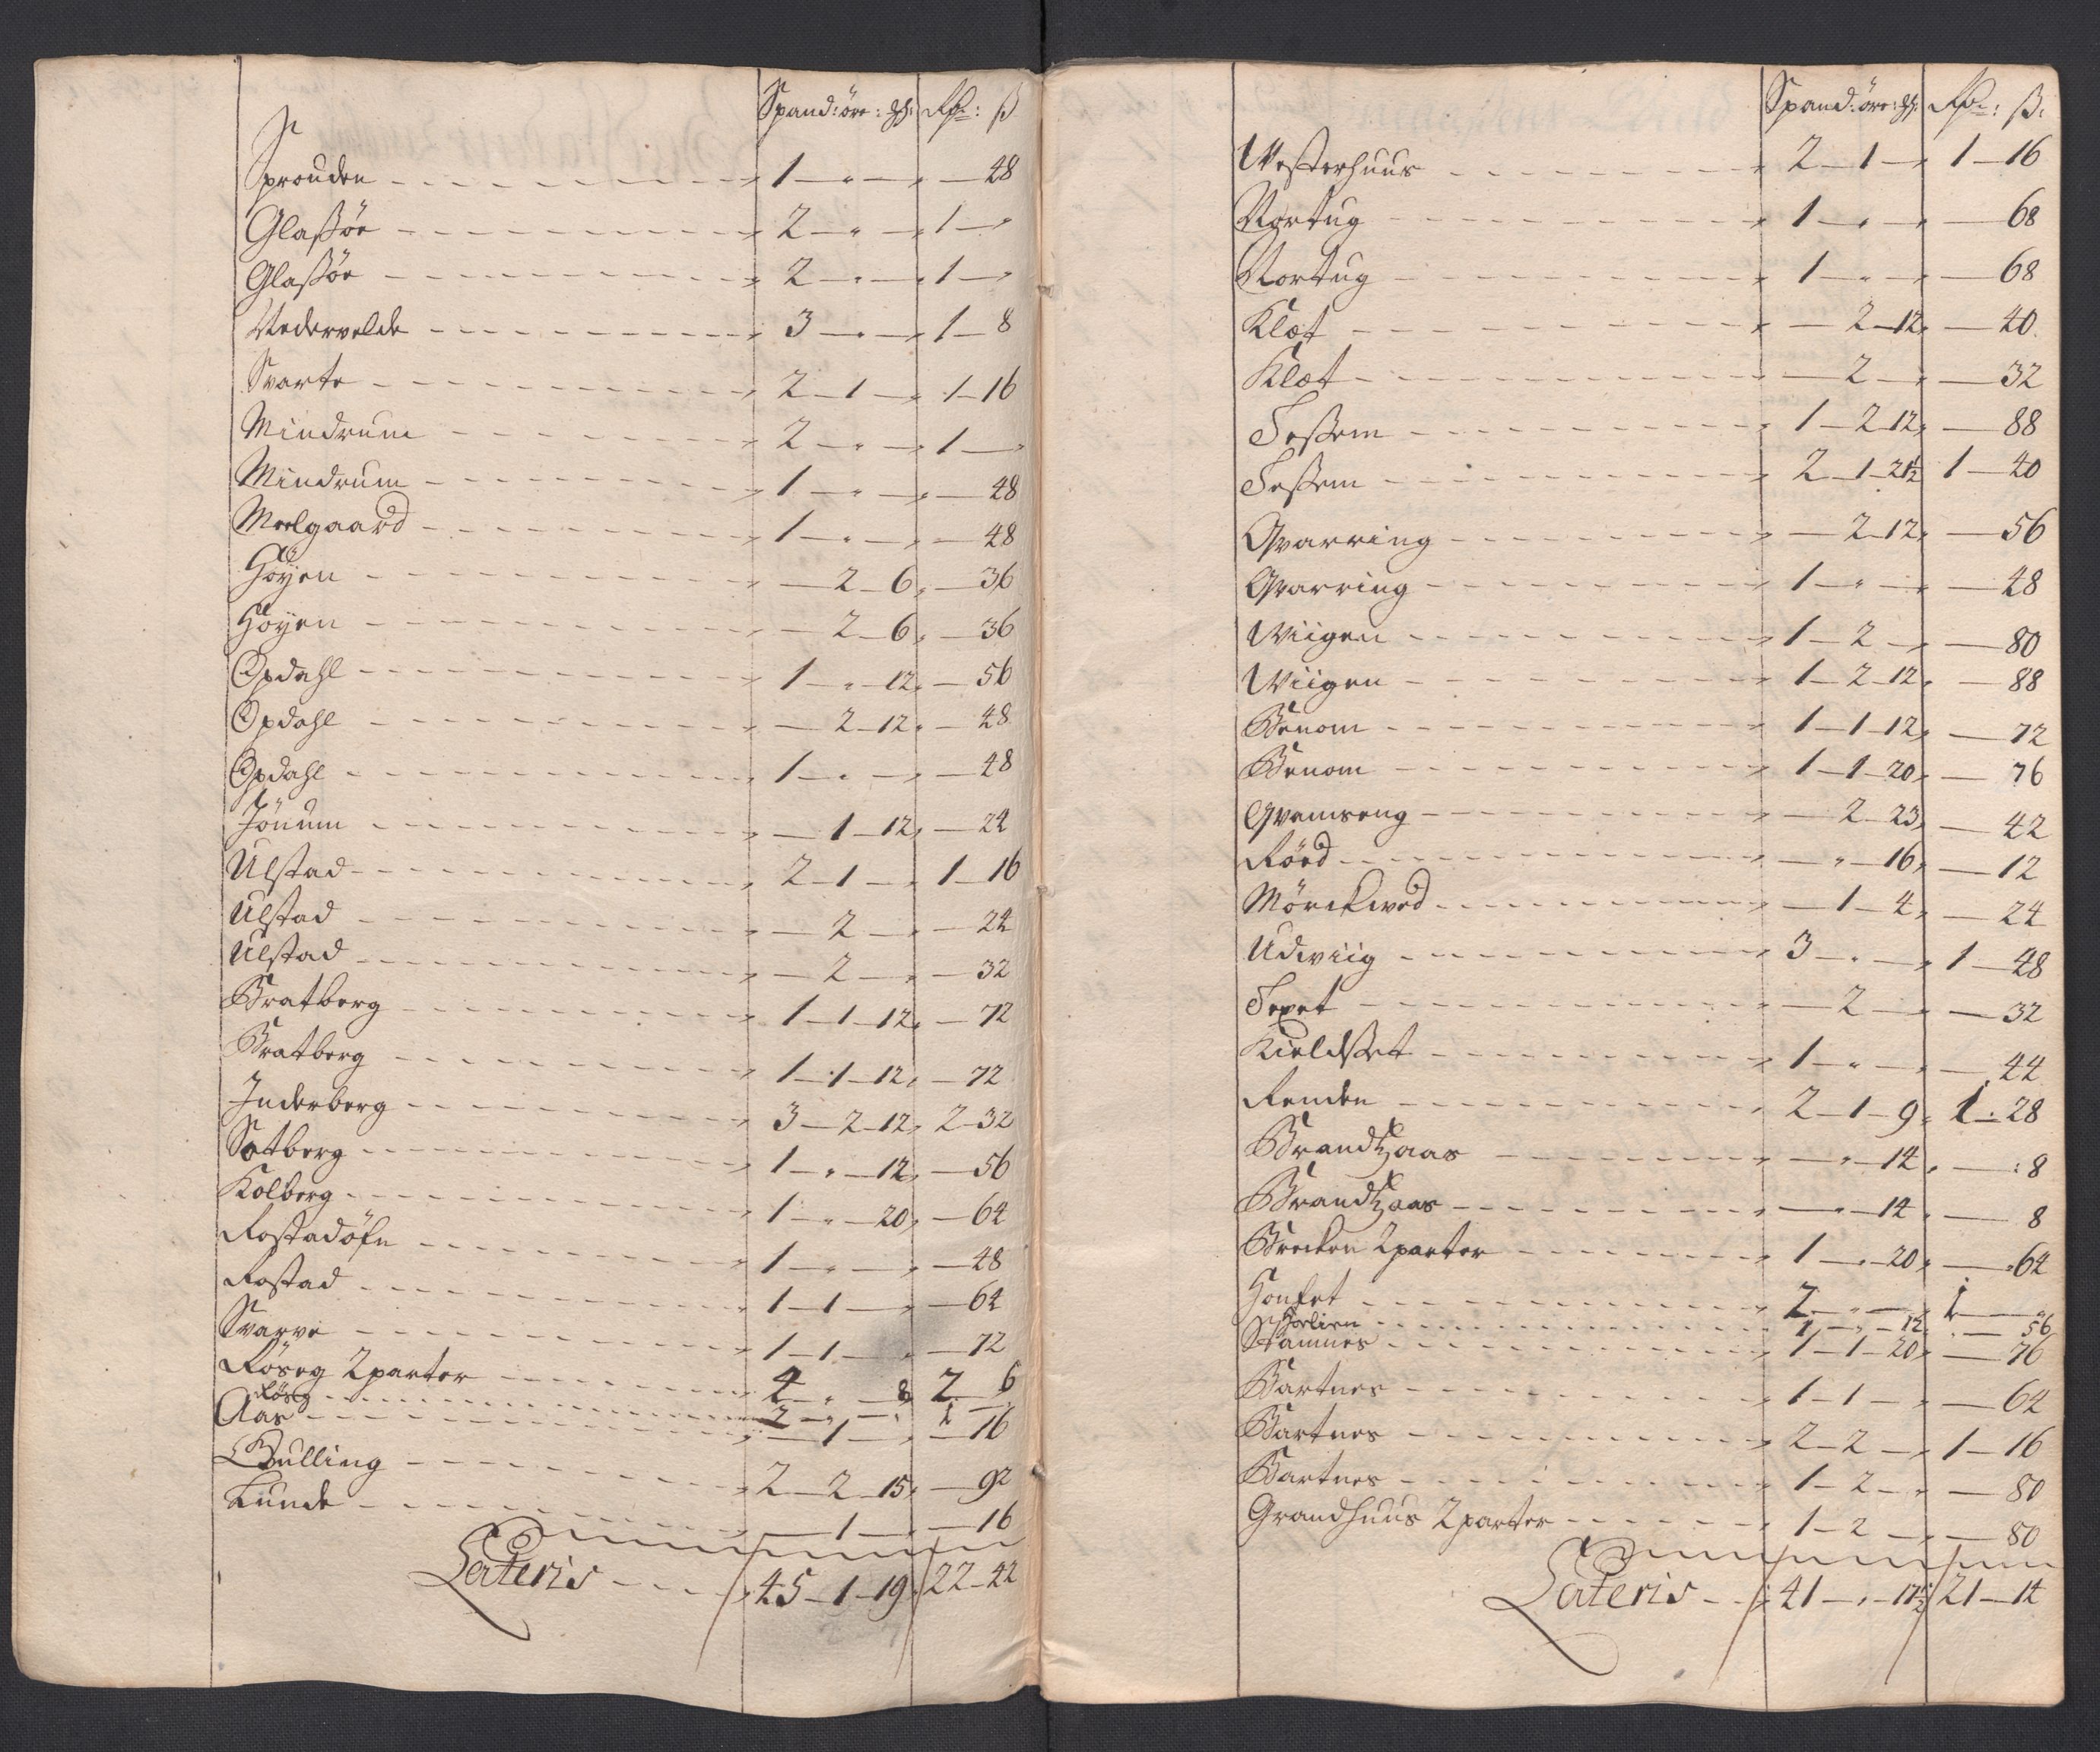 Spand: öre: ₰: Rd: ß
Sprouden - - - 1 — " — " — 48
Glaßöe - - - 2 — " — 1 — "
Glaßöe - - - 2 — " — 1 — "
Nedervelde - - - 3 — " — 1 — 8
Svarte - - - 2 — 1 — " 1 — 16
Mindrum - - - 2 — " — " 1 — "
Mindrum - - - 1 — " — " — 48
Moelgaard - - - 1 — " — " — 48
Höyen - - - — 2 — 6 " — 36
Höyen - - - — 2 — 6 " — 36
Opdahl - - - 1 — " — 12 " — 56
Opdahl - - - — 2 — 12 " — 48
Opdahl - - - 1 — " — " — 48
Jönum - - - — 1 — 12 " — 24
Ulstad - - - 2 — 1 — " 1 — 16
Ulstad - - - — 2 — " — 24
Ulstad - - - — 2 — " — 32
Bratberg - - - 1 — 1 — 12 " — 72
Bratberg - - - 1 — 1 — 12 " — 72
Inderberg - - - 3 — 2 — 12 " 2 — 32
Sotberg - - - 1 — " — 12 " — 56
Kolberg - - - 1 — " — 20 " — 64
Rostadöfn - - - 1 — " — " — 48
Rostad - - - 1 — 1 — " — 64
Svarve - - - 1 — 1 — " — 72
Röseg 2 parter - - - 4 — " — 8 2 — 6
Röseg - - - 2 — " — " 1 —
Aas - - - — 1 — " — 16
Bulling - - - 2 — 2 — 15 " — 92
Lunde - - - — 1 — " — 16
Lateris - - - 45 — 1 — 19 " 22 — 42
Spand: öre: ₰: Rd: ß:
Westerhuus - - - 2 — 1 — " 1 — 16
Nortug - - - 1 — " — " — 68
Nortug - - - 1 — " — " — 68
Klæt - - - — 2 — 12 " — 40
Klæt - - - — 2 — " — 32
Teßem - - - 1 — 2 12 " — 88
Teßem - - - 2 — 1 — 21½ 1 — 40
Qvarring - - - — 2 — 12 " — 56
Qvarring - - - 1 — " — " — 48
Wiigen - - - 1 — 2 — " — 80
Wiigen - - - 1 — 2 — 12 " — 88
Benom - - - 1 — 1 — 12 " — 72
Benom - - - 1 — 1 — 20 " — 76
Qvamseng - - - — 2 — 23 " — 42
Röed - - - — " — 16 " — 12
Mörckved - - - — 1 — 4 " — 24
Udwiig - - - 3 — " — " 1 — 48
Texet - - - — 2 — " — 32
Kieldßet - - - 1 — " — " — 44
Remden - - - 2 — 1 — 9 " 1 : 28
Brandtzaas - - - — " — 14 " — : 8
Brandtzaas - - - — " — 14 " — 8
Brecken 2 parter - - - 1 — " — 20 " — 64
Honset - - - 2 — " — " 1 — "
Holien - - - 1 — " — 12 " — 56
Stamnes - - - 1 — 1 — 20 " — 76
Bartnes - - - 1 — 1 — " — 64
Bartnes - - - 2 — 2 — " 1 — 16
Bartnes - - - 1 — 2 — " — 80
Grandhuus 2 parter - - - 1 — 2 — " — 80
Lateris - - - 41 — " — 17½ 21 — 14